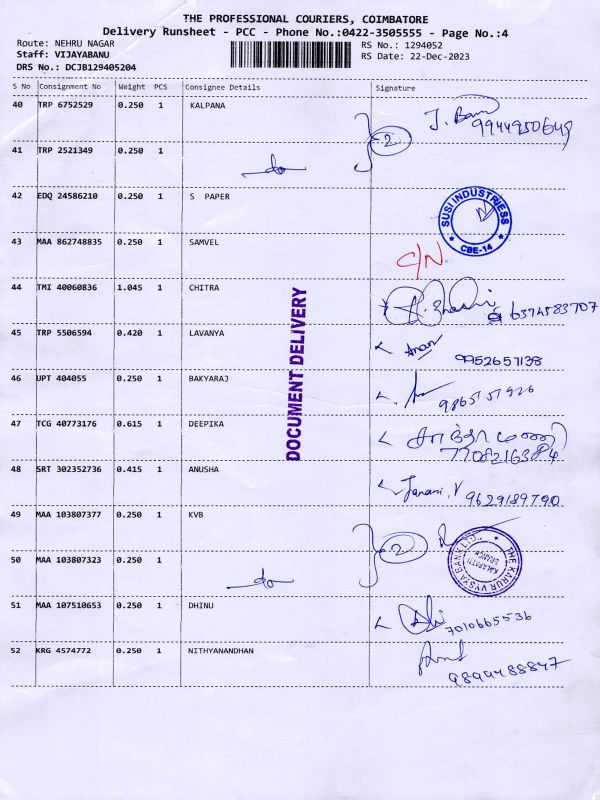 THE PROFESSIONAL COURIERS, COIMBATORE
Delivery Runsheet - PCC - Phone No.:0422-3505555 - Page No.:4
Route: NEHRU NAGAR RS No.: 1294052
Staff: VIJAYABANU RS Date: 22-Dec-2023
DRS No.: DCJB129405204
S No Consignment No Weight PCS Consignee Details Signature
40 TRP 6752529 0.250 1 KALPANA
9944950649
2
41 TRP 2521349 0.250 1
do
42 EDQ 24586210 0.250 1 S PAPER
SUSI INDUSTRIESS
CBE-14
43 MAA 862748835 0.250 1 SAMVEL
C/N
44 TMI 40060836 1.045 1 CHITRA
6374583707
DOCUMENT DELIVERY
45 TRP 5506594 0.420 1 LAVANYA
9952657138
46 UPT 404055 0.250 1 BAKYARAJ
47 TCG 40773176 0.615 1 DEEPIKA
7708216384
48 SRT 302352736 0.415 1 ANUSHA
Janani.V 9629189790
49 MAA 103807377 0.250 1 KVB
2
THE KARUR VYSYA BANK LTD.,
KALAPATTI
BRANCH
50 MAA 103807323 0.250 1
do
51 MAA 107510653 0.250 1 DHINU
7010665536
52 KRG 4574772 0.250 1 NITHYANANDHAN
9894488847